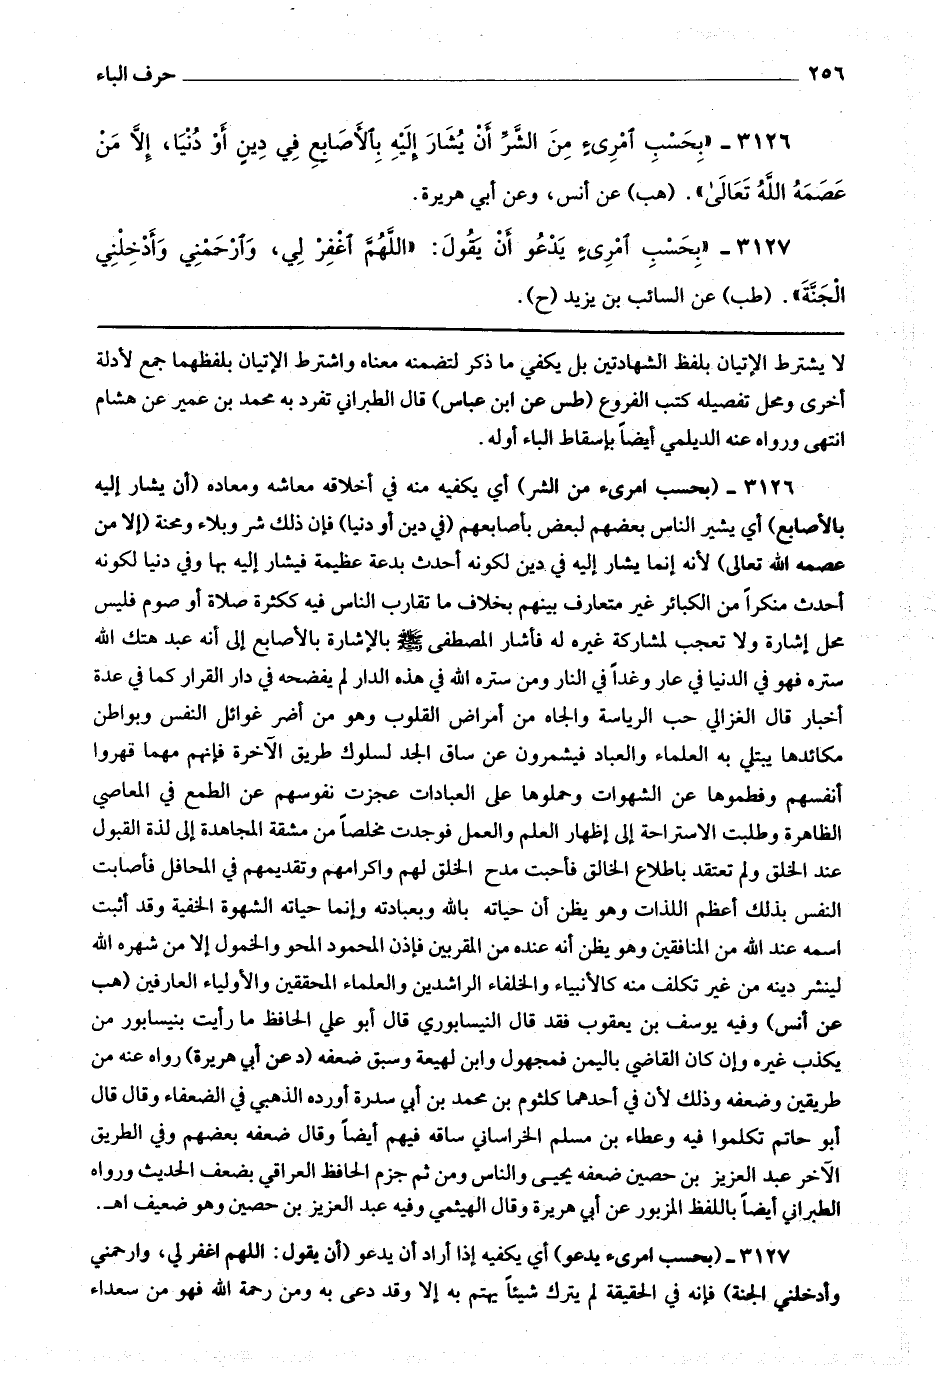 ٢٥٦ حرف الباء
٣١٢٦ - «بِحَسْبِ آمْرِىءٍ مِنَ الشَّرِّ أَنْ يُشَارَ إِلَيْهِ بِٱلأَصَابِعِ فِي دِينٍ أَوْ دُنْيَا، إِلاَّ مَنْ
عَصَمَهُ اللَّهُ تَعَالَىٰ». (هب) عن أنس، وعن أبي هريرة.
٣١٢٧ - «بِحَسْبِ آمْرِىءٍ يَدْعُو أَنْ يَقُولَ: «اللَّهُمَّ آغْفِرْ لِي، وَآرْحَمْنِي وَأَدْخِلْنِي
الْجَنَّةَ». (طب) عن السائب بن يزيد (ح).
لا يشترط الإتيان بلفظ الشهادتين بل يكفي ما ذكر لتضمنه معناه واشترط الإتيان بلفظهما جمع لأدلة
أخرى ومحل تفصيله كتب الفروع (طس عن ابن عباس) قال الطبراني تفرد به محمد بن عمير عن هشام
انتهى ورواه عنه الديلمي أيضاً بإسقاط الباء أوله.
٣١٢٦ - (بحسب امرىء من الشر) أي يكفيه منه في أخلاقه معاشه ومعاده (أن يشار إليه
بالأصابع) أي يشير الناس بعضهم لبعض بأصابعهم (في دين أو دنيا) فإن ذلك شر وبلاء ومحنة (إلا من
عصمه الله تعالى) لأنه إنما يشار إليه في دين لكونه أحدث بدعة عظيمة فيشار إليه بها وفي دنيا لكونه
أحدث منكراً من الكبائر غير متعارف بينهم بخلاف ما تقارب الناس فيه ككثرة صلاة أو صوم فليس
محل إشارة ولا تعجب لمشاركة غيره له فأشار المصطفى ﷺ بالإشارة بالأصابع إلى أنه عبد هتك الله
ستره فهو في الدنيا في عار وغداً في النار ومن ستره الله في هذه الدار لم يفضحه في دار القرار كما في عدة
أخبار قال الغزالي حب الرياسة والجاه من أمراض القلوب وهو من أضر غوائل النفس وبواطن
مكائدها يبتلي به العلماء والعباد فيشمرون عن ساق الجد لسلوك طريق الآخرة فإنهم مهما قهروا
أنفسهم وفطموها عن الشهوات وحملوها على العبادات عجزت نفوسهم عن الطمع في المعاصي
الظاهرة وطلبت الاستراحة إلى إظهار العلم والعمل فوجدت مخلصاً من مشقة المجاهدة إلى لذة القبول
عند الخلق ولم تعتقد باطلاع الخالق فأحبت مدح الخلق لهم واكرامهم وتقديمهم في المحافل فأصابت
النفس بذلك أعظم اللذات وهو يظن أن حياته بالله وبعبادته وإنما حياته الشهوة الخفية وقد أثبت
اسمه عند الله من المنافقين وهو يظن أنه عنده من المقربين فإذن المحمود المحو والخمول إلا من شهره الله
لينشر دينه من غير تكلف منه كالأنبياء والخلفاء الراشدين والعلماء المحققين والأولياء العارفين (هب
عن أنس) وفيه يوسف بن يعقوب فقد قال النيسابوري قال أبو علي الحافظ ما رأيت بنيسابور من
يكذب غيره وإن كان القاضي باليمن فمجهول وابن لهيعة وسبق ضعفه (د عن أبي هريرة) رواه عنه من
طريقين وضعفه وذلك لأن في أحدهما كلثوم بن محمد بن أبي سدرة أورده الذهبي في الضعفاء وقال قال
أبو حاتم تكلموا فيه وعطاء بن مسلم الخراساني ساقه فيهم أيضاً وقال ضعفه بعضهم وفي الطريق
الآخر عبد العزيز بن حصين ضعفه يحيى والناس ومن ثم جزم الحافظ العراقي بضعف الحديث ورواه
الطبراني أيضاً باللفظ المزبور عن أبي هريرة وقال الهيثمي وفيه عبد العزيز بن حصين وهو ضعيف اهـ.
٣١٢٧ - (بحسب امرىء يدعو) أي يكفيه إذا أراد أن يدعو (أن يقول: اللهم اغفر لي، وارحمني
وأدخلني الجنة) فإنه في الحقيقة لم يترك شيئاً يهتم به إلا وقد دعى به ومن رحمة الله فهو من سعداء